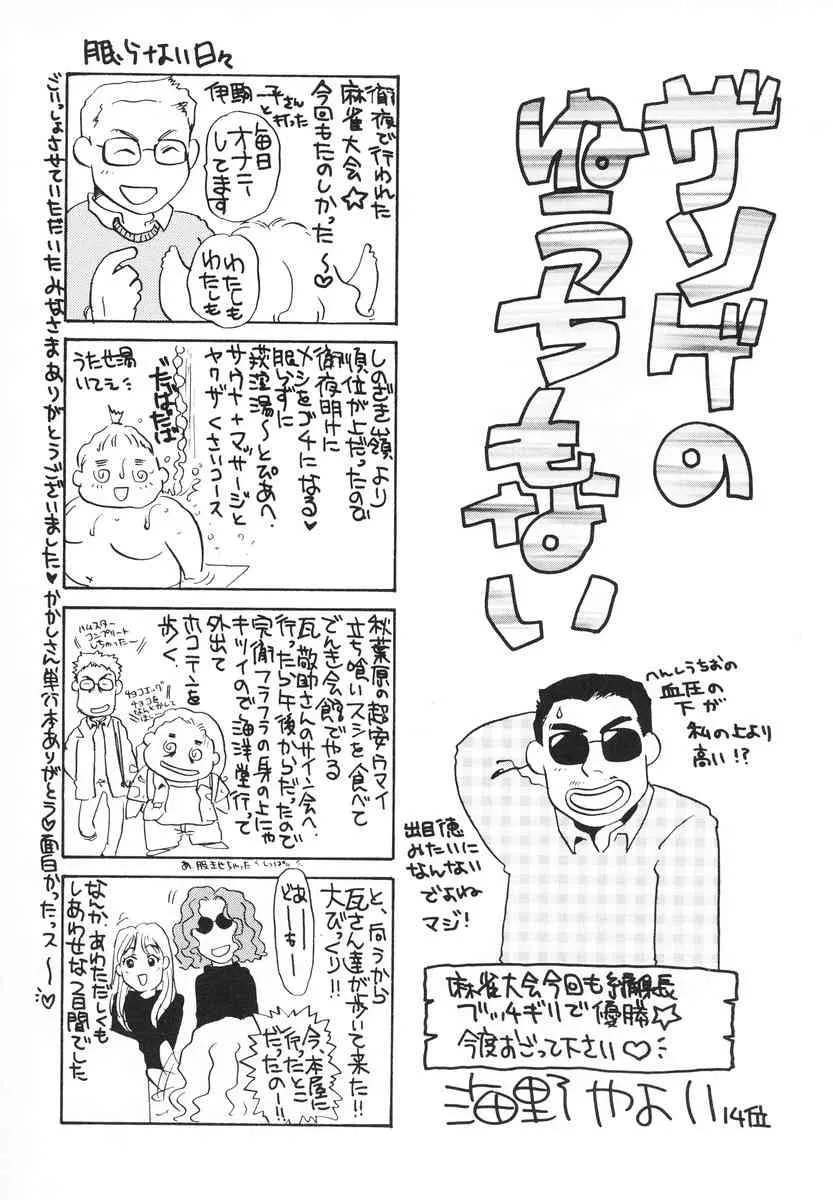 ザンゲの
ゆうちもない
へんしうちおの
血圧の
下が
私の上より
高い!?
出目徳
みたいに
なんない
でよね
マジ!
麻雀大会今回も
ブッチギリで優勝☆
今度おごって下さい♡
海野やよい
14位
眠らない日々
徹夜で行われた
麻雀大会☆
今回もたのしかった〜♡
伊駒一平さん
と打った
毎日
オナニー
してます
わたしも
わたしも
しのざき嶺より
順位が上だったので
徹夜明けに
メシをゴチになる♥
眠らずに
荻窪湯〜とぴあへ
サウナ+マッサージと
ヤクザくさいコース
だばだば
うたせ湯
いてえ
秋葉原の超安ウマイ
立ち喰いスシを食べて
でんき会館でやる
瓦敬助さんのサイン会へ
行ったら午後からだったので
完徹フラフラの身の上にゃ
キツイので海洋堂行って
外出て
ホコテンを
歩く
ハムスター
コンプリート
しちゃった〜
チョコエッグ
チョコを
なんとかして
あ、服きせちゃった
と、向うから
瓦さん達が歩いて来た!!
大びっくり!!
どおーもー
今、本屋に
行ったとこ
だったのー!!
なんか、あわただしくも
しあわせな2日間でした
ごいっしょさせていただいたみなさまありがとうございました♥かかしさん単行本ありがとう♡面白かったっス〜♡